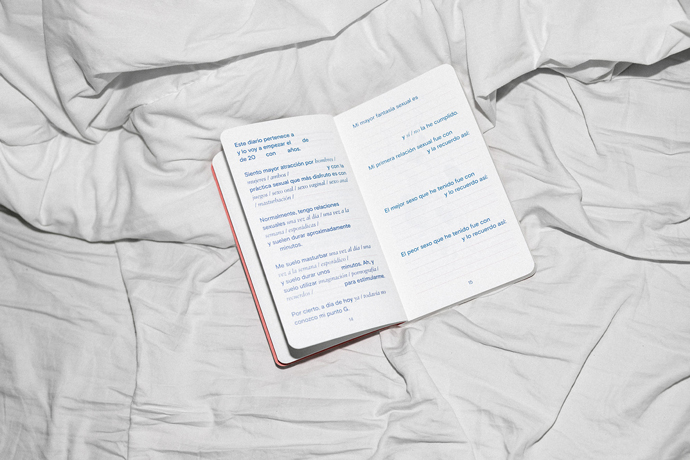 Este diario pertenece a
y lo voy a empezar el de
de 20 con años.
Siento mayor atracción por hombres /
mujeres / ambos / y con la
práctica sexual que más disfruto es con
juegos / sexo oral / sexo vaginal / sexo anal
/ masturbación /
Normalmente, tengo relaciones
sexuales una vez al día / una vez a la
semana / esporádicas /
y suelen durar aproximadamente
minutos.
Me suelo masturbar una vez al día / una
vez a la semana / esporádico /
y suelo durar unos minutos. Ah, y
suelo utilizar imaginación / pornografía /
recuerdos / para estimularme.
Por cierto, a día de hoy ya / todavía no
conozco mi punto G.
14
Mi mayor fantasía sexual es
y sí / no la he cumplido.
Mi primera relación sexual fue con
y la recuerdo así:
El mejor sexo que he tenido fue con
y lo recuerdo así:
El peor sexo que he tenido fue con
y lo recuerdo así:
15